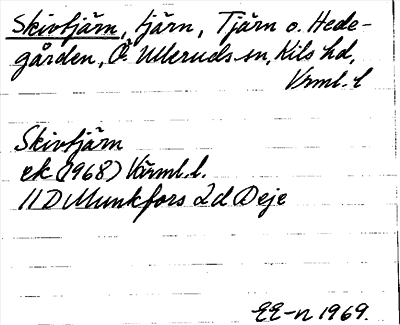 Skivtjärn, tjärn, Tjärn o. Hede-
gården, Ö. Ulleruds sn, Kils hd,
Vrml. l
Skivtjärn
ek (1968) Värml. l.
11 D Munkfors 2 d Deje
EE-n 1969.